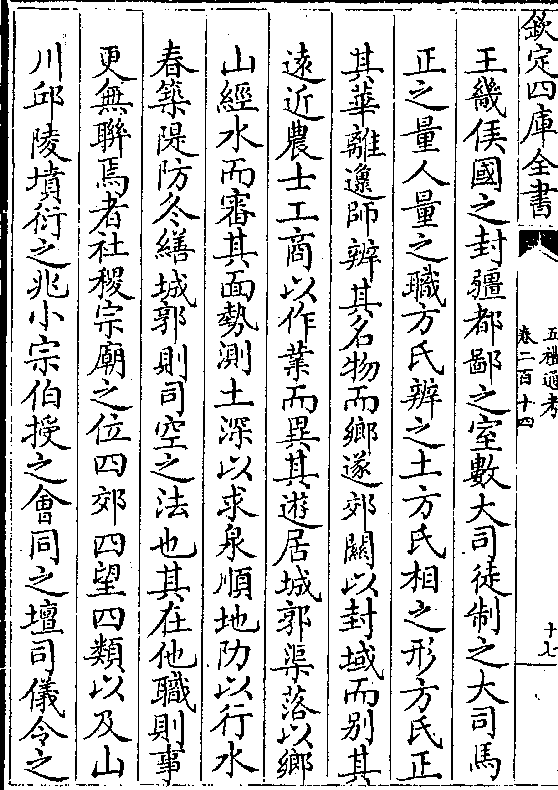 欽定四庫全書
五禮通考
卷二百十四
十七
王畿侯國之封疆都鄙之室數大司徒制之大司馬
正之量人量之職方氏辨之土方氏相之形方氏正
其華離邍師辨其名物而鄉遂郊關以封域而别其
遠近農士工商以作業而異其遊居城郭渠落以鄉
山經水而審其面勢測土深以求泉順地阞以行水
春築隄防冬繕城郭則司空之法也其在他職則事
更無聯焉者社稷宗廟之位四郊四望四類以及山
川邱陵墳衍之兆小宗伯授之會同之壇司儀令之